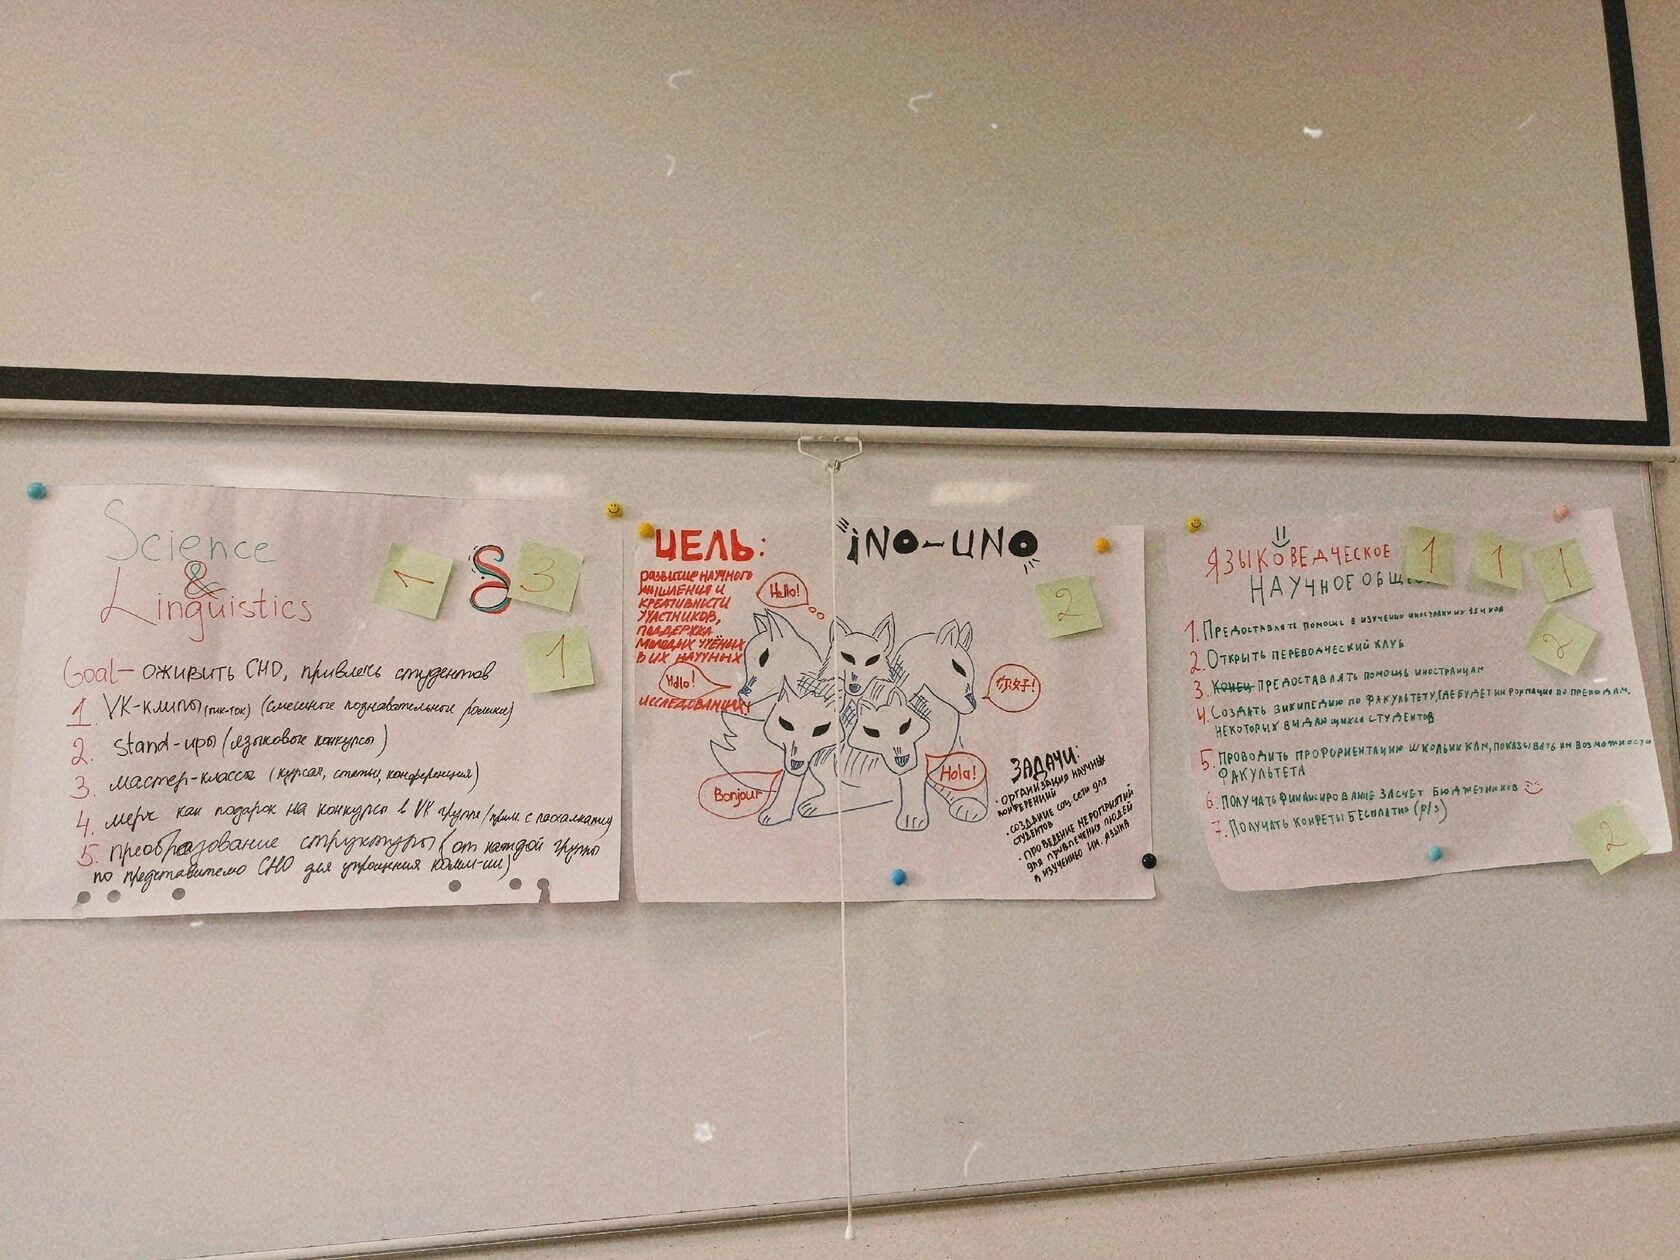 Science
&
Linguistics
S
1
3
1
Goal - оживить СНО, привлечь студентов
1. VK-клипы (тик-ток) (смешные познавательные ролики)
2. Stand-upы (языковые конкурсы)
3. мастер-классы (курсач, статьи, конференция)
4. мерч как подарок на конкурсы в VK группе
5. преобразование структуры (от каждой группы
по представителю СНО для упрощения комм-ии)
ЦЕЛЬ:
РАЗВИТИЕ НАУЧНОГО
МЫШЛЕНИЯ И
КРЕАТИВНОСТИ
УЧАСТНИКОВ,
ПОДДЕРЖКА
МОЛОДЫХ УЧЁНЫХ
В ИХ НАУЧНЫХ
ИССЛЕДОВАНИЯХ
iNO-UNO
2
Hello!
Hallo!
你好!
Bonjour
Hola!
ЗАДАЧИ:
• ОРГАНИЗАЦИЯ НАУЧНЫХ
КОНФЕРЕНЦИЙ
• СОЗДАНИЕ СОЦ. СЕТИ ДЛЯ
СТУДЕНТОВ
• ПРОВЕДЕНИЕ МЕРОПРИЯТИЙ
ДЛЯ ПРИВЛЕЧЕНИЯ ЛЮДЕЙ
К ИЗУЧЕНИЮ ИН. ЯЗЫКА
ЯЗЫКОВЕДЧЕСКОЕ
НАУЧНОЕ ОБЩЕС
1
1
1
2
2
1. ПРЕДОСТАВЛЯТЬ ПОМОЩЬ В ИЗУЧЕНИИ ИНОСТРАННЫХ ЯЗЫКОВ
2. ОТКРЫТЬ ПЕРЕВОДЧЕСКИЙ КЛУБ
3. ПРЕДОСТАВЛЯТЬ ПОМОЩЬ ИНОСТРАНЦАМ
4. СОЗДАТЬ ВИКИПЕДИЮ ПО ФАКУЛЬТЕТУ, ГДЕ БУДЕТ ИНФОРМАЦИЯ ПО ПРЕПОДАМ,
НЕКОТОРЫХ ВЫДАЮЩИХСЯ СТУДЕНТОВ
5. ПРОВОДИТЬ ПРОФОРИЕНТАЦИЮ ШКОЛЬНИКАМ, ПОКАЗЫВАТЬ ИМ ВОЗМОЖНОСТИ
ФАКУЛЬТЕТА
6. ПОЛУЧАТЬ ФИНАНСИРОВАНИЕ ЗАСЧЕТ БЮДЖЕТНИКОВ
7. ПОЛУЧАТЬ КОНФЕТЫ БЕСПЛАТНО (P/S)